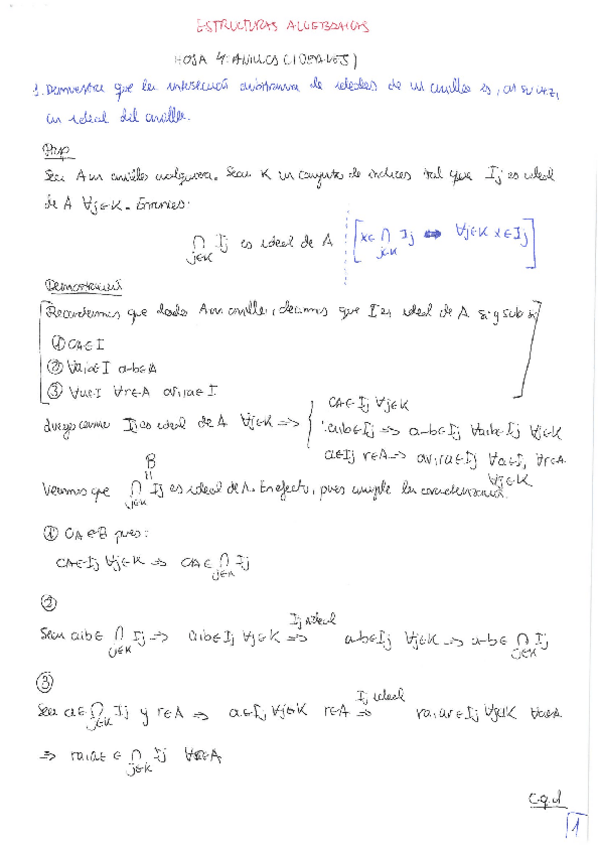 ESTRUCTURAS ALGEBRAICAS
HOJA 4: ANILLOS (IDEALES)
1. Demuestra que la intersección arbitraria de ideales de un anillo es, a su vez,
un ideal del anillo.
Prop
Sea A un anillo cualquiera. Sean K un conjunto de índices tal que Ij es ideal
de A ∀j∈K. Entonces:
⋂ Ij es ideal de A [x∈ ⋂ Ij ⟺ ∀j∈K x∈Ij]
j∈K j∈K
Demostración
Recordemos que dado A un anillo, decimos que I es ideal de A si y solo si
① 0A∈I
② ∀a,b∈I a-b∈A
③ ∀a∈I ∀r∈A ar,ra∈I
luego como Ij es ideal de A ∀j∈K ⟹
0A∈Ij ∀j∈K
a,b∈Ij ⟹ a-b∈Ij ∀a,b∈Ij ∀j∈K
a∈Ij r∈A ⟹ ar,ra∈Ij ∀a∈Ij, ∀r∈A
∀j∈K
B
Veamos que ⋂ Ij es ideal de A. En efecto, pues cumple la caracterización
j∈K
① 0A∈B pues:
0A∈Ij ∀j∈K ⟹ 0A∈ ⋂ Ij
j∈K
②
Sean a,b∈ ⋂ Ij ⟹ a,b∈Ij ∀j∈K ⟹ a-b∈Ij ∀j∈K ⟹ a-b∈ ⋂ Ij
j∈K Ij ideal j∈K
③
Sea a∈ ⋂ Ij y r∈A ⟹ a∈Ij ∀j∈K r∈A ⟹ ra,ar∈Ij ∀j∈K ∀r∈A
j∈K Ij ideal
⟹ ra,ar ∈ ⋂ Ij ∀r∈A
j∈K
c.q.d
1